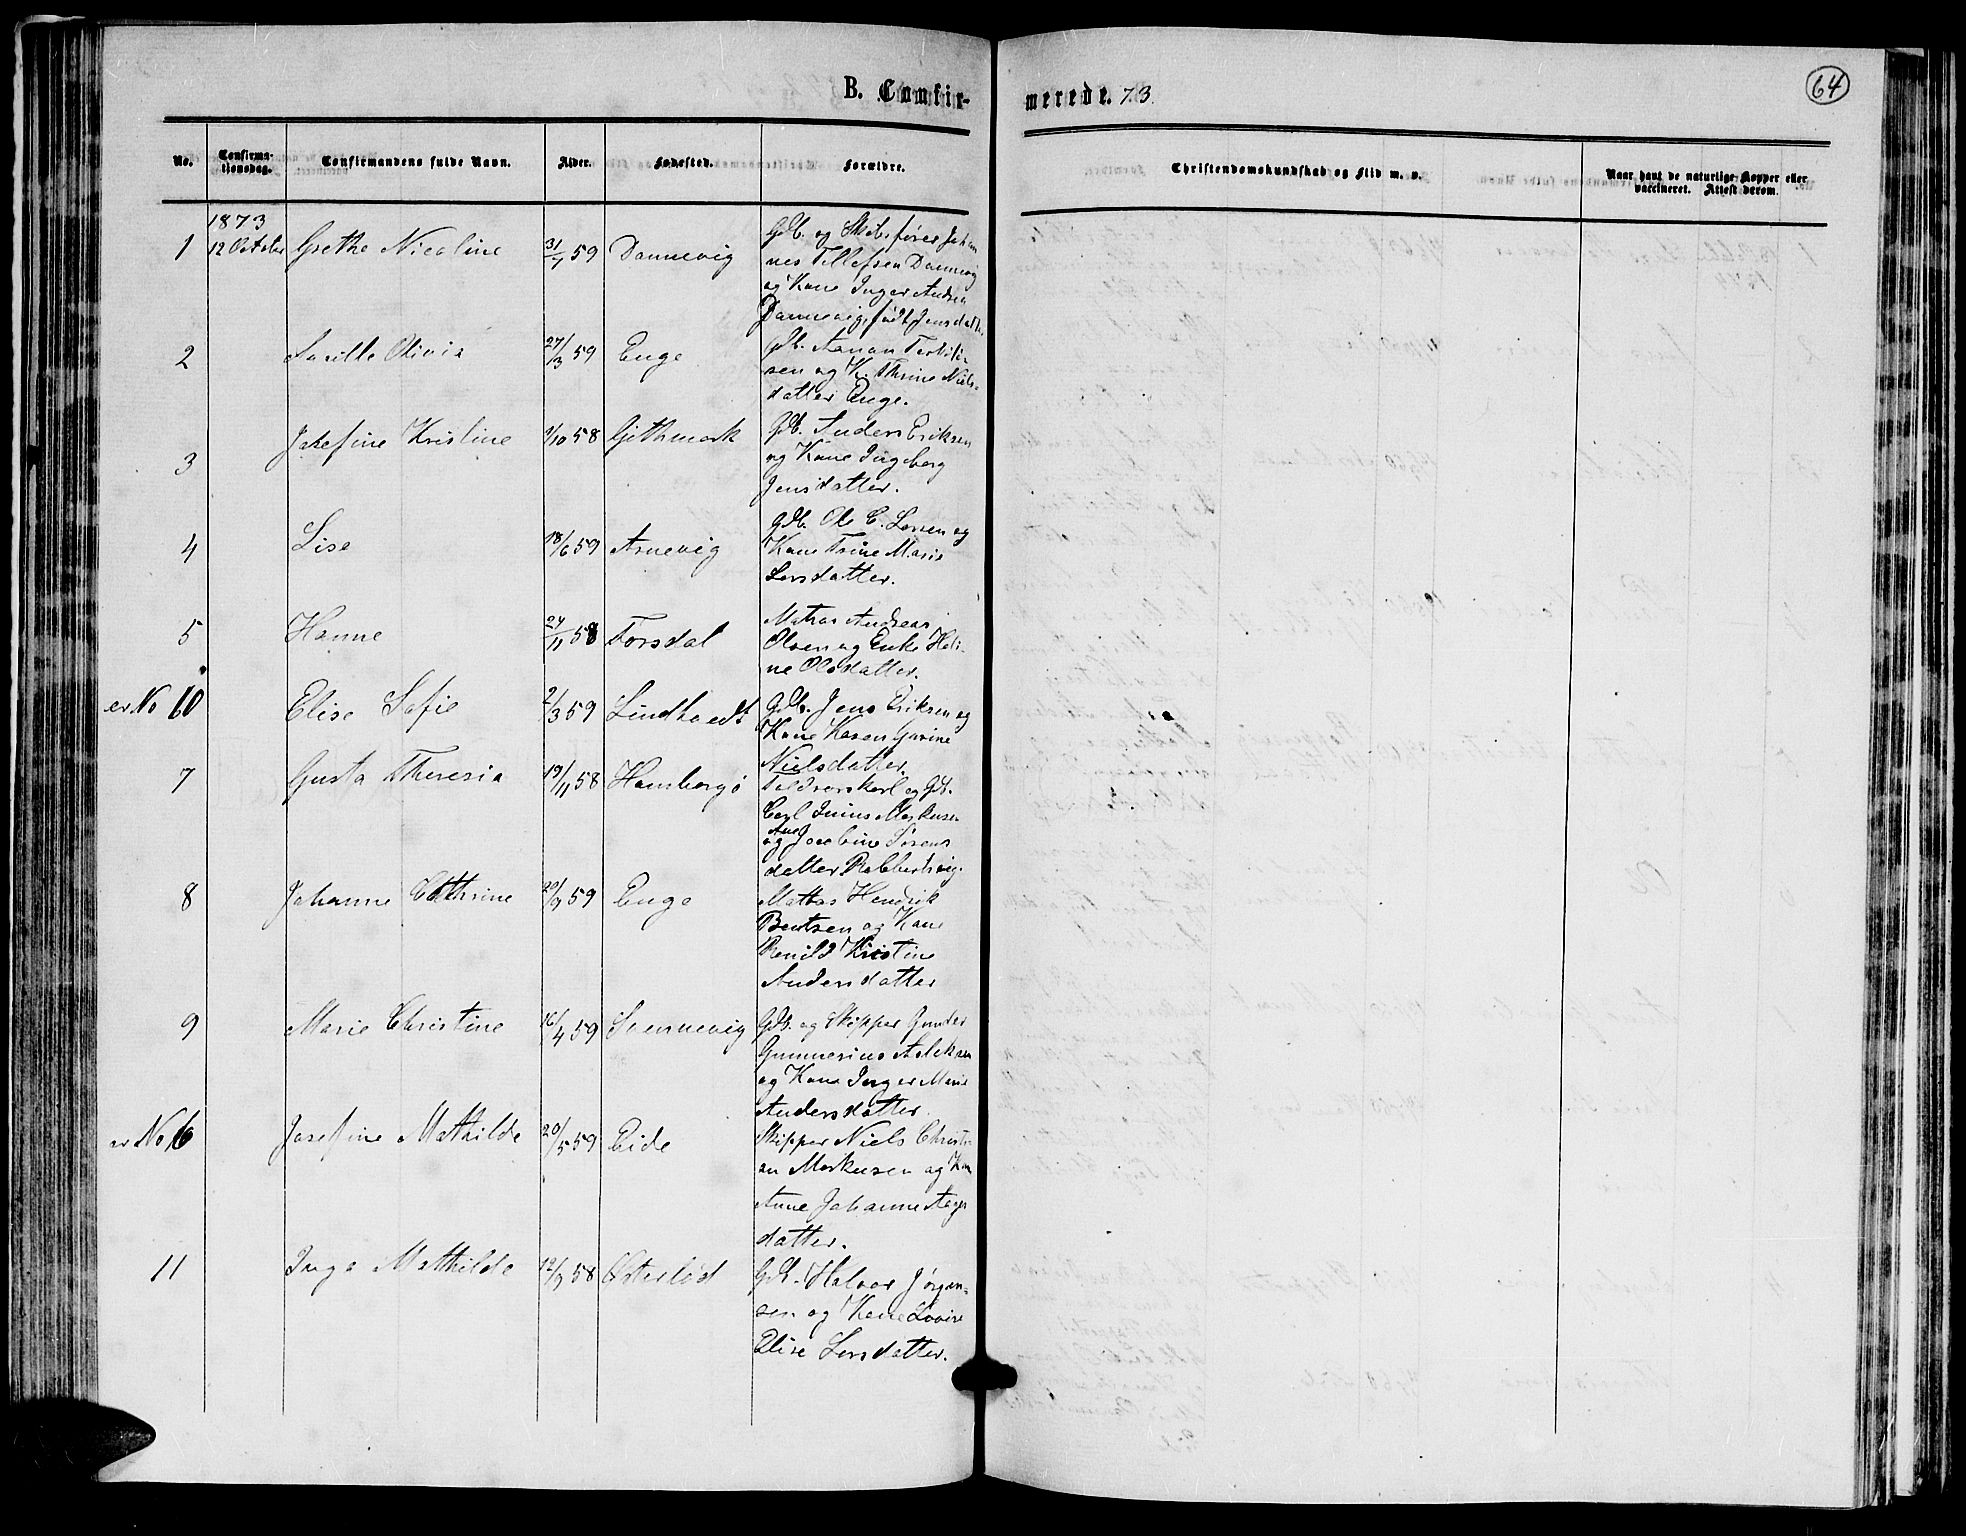 B. Confirmerede. 73.
64
No. Confirmationsdag. Confirmandens fulde Navn. Alder. Fødested. Forældre. Christendomskundskab og Flid m. v. Naar havt de naturlige Kopper eller vaccineret. Attest derom.
1873
1 12 October Grethe Nicoline 31/7 59 Dannevig Gdb. og Skibsfører Johan
nes Tellefsen Dannevig
og Kone Inger Andrea
Dannevig, født Jensdatter
2 Olivia 27/3 59 Enge Gdb. Aanon
sen og K. Thrine Niels-
datter Enge.
3 Josefine Kristine 1/10 58 Githmark Gdb. Anders Eriksen
og Kone Ingeborg
Jensdatter.
4 Lise 18/6 59 Arnevig Gdb. Ole C. Larsen og
Kone Trine Marie
Larsdatter.
5 Hanne 24/11 58 Torsdal Matros Andreas
Olsen og Enke Heli-
ne Olsdatter.
er No 10 Elise Sofie 2/3 59 Lindtvedt Gdb. Jens Eriksen og
Kone Karen Gurine
Nielsdatter.
7 Gusta Theresia 19/11 58 Homborgø Toldrorskarl og Gdb.
Carl Junius Markusen
og Ane Jacobine Sørens
datter Robbersvig.
8 Johanne Cathrine 20/9 59 Enge Matros Hendrik
Bentsen og Kone
Renild Kristine
Andersdatter
9 Marie Christine 16/4 59 Svennevig Gdb. og Skipper Gunder
Gunnerius Aslaksen
og Kone Inger Marie
Andersdatter.
er No 6 Josefine Mathilde 20/5 59 Eide Skipper Niels Christi-
an Markusen og Kone
Anne Johanne Aags
datter.
11 Inga Mathilde 12/9 58 Østerlød Gdb. Halvor Jørgen-
sen og Kone Lovise
Elise Larsdatter.